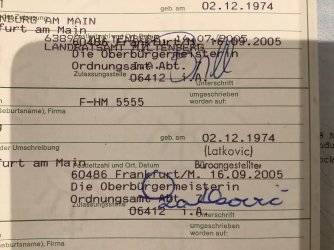 geb. am 02.12.1974
NBURG AM MAIN
furt am Main
60486 Frankfurt/M. 16.09.2005
LANDRATSAMT MILTENBERG
Die Oberbürgermeisterin
Ordnungsamt Abt.
Zulassungsstelle
06412 i.A.
Unterschrift
umgeschrieben
worden auf:
F-HM 5555
Geburtsname), Firma
geb. am 02.12.1974
der Umschreibung
(Latkovic)
furt am Main
Postleitzahl und Ort, Datum
Büroangestellter
60486 Frankfurt/M. 16.09.2005
Die Oberbürgermeisterin
Ordnungsamt Abt.
Zulassungsstelle
06412 i.A.
Unterschrift
umgeschrieben
worden auf:
eburtsname), Firma